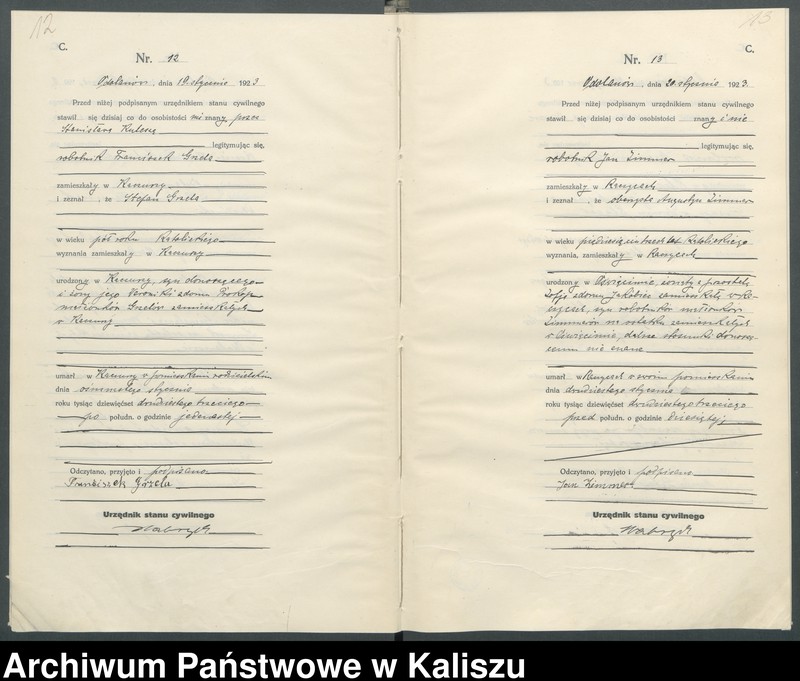 12
C.
Nr. 12
Odolanów, dnia 19 stycznia 1923
Przed niżej podpisanym urzędnikiem stanu cywilnego
stawił się dzisiaj co do osobistości znany, przez
Stanisława
legitymując się,
robotnik Franciszek Grzela
zamieszkały w
i zeznał, że Stefan Grzela
w wieku pół roku Katolickiego
wyznania zamieszkały w
urodzony w syn donoszącego
i żony jego Weroniki z domu
małżonków zamieszkałych
w
umarł w w pomieszkaniu rodzicielskim
dnia osiemnastego stycznia
roku tysiąc dziewięćset dwudziestego trzeciego
po połudn. o godzinie jedenastej
Odczytano, przyjęto i podpisano
Franciszek Grzela
Urzędnik stanu cywilnego
13
C.
Nr. 13
Odolanów, dnia 20 stycznia 1923
Przed niżej podpisanym urzędnikiem stanu cywilnego
stawił się dzisiaj co do osobistości znany i nie
legitymując się,
robotnik Jan Zimmer
zamieszkały w
i zeznał, że Augustyn Zimmer
w wieku pięćdziesiąt trzech lat Katolickiego
wyznania, zamieszkały w
urodzony w Oświęcimie, żonaty z pozostałą
Zofją z domu zamieszkałą w
syn robotnika małżonków
Zimmerów na ostatku zamieszkałych
w Oświęcimie, dalsze stosunki donoszą-
cemu nie znane
umarł w w swoim pomieszkaniu
dnia dwudziestego stycznia
roku tysiąc dziewięćset dwudziestego trzeciego
przed połudn. o godzinie dziesiątej
Odczytano, przyjęto i podpisano
Jan Zimmer
Urzędnik stanu cywilnego
Archiwum Państwowe w Kaliszu